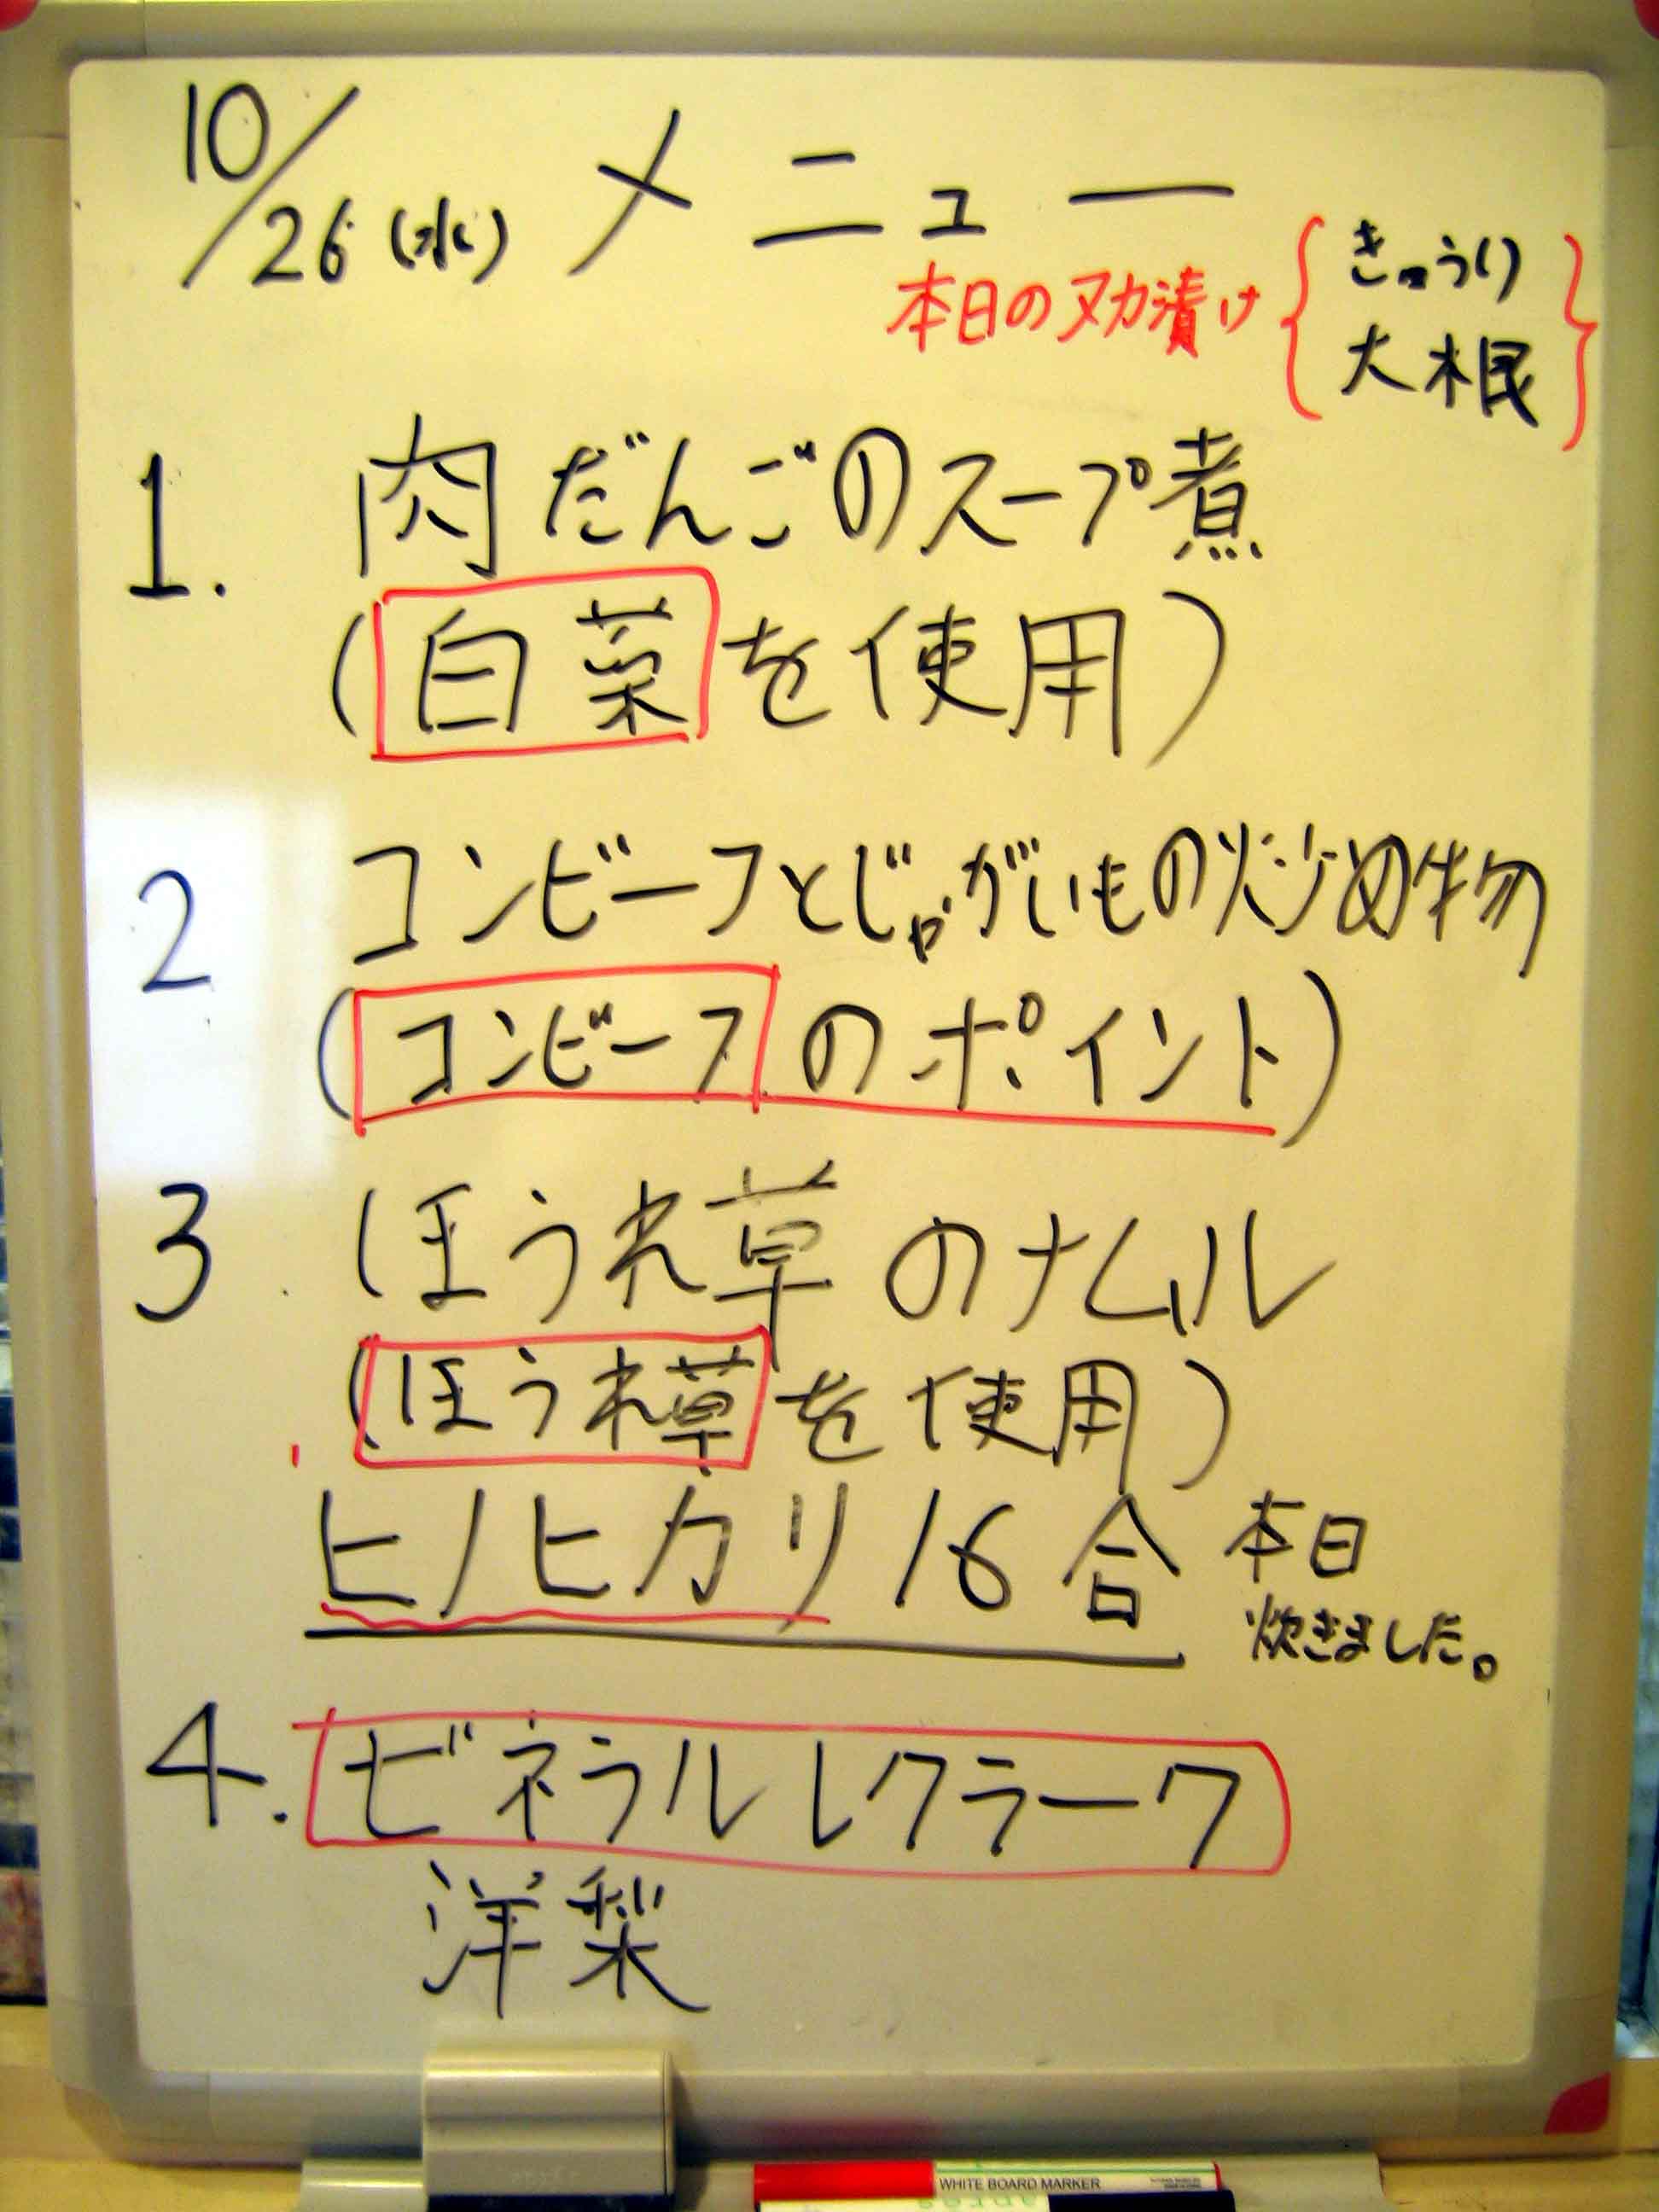 10/26(水) メニュー
本日のヌカ漬け { きゅうり
大根 }
1. 肉だんごのスープ煮
(白菜を使用)
2 コンビーフとじゃがいもの炒め物
(コンビーフのポイント)
3. ほうれ草のナムル
(ほうれ草を使用)
ヒノヒカリ 16合 本日
炊きました。
4. ゼネラルレクラーク
洋梨
WHITE BOARD MARKER